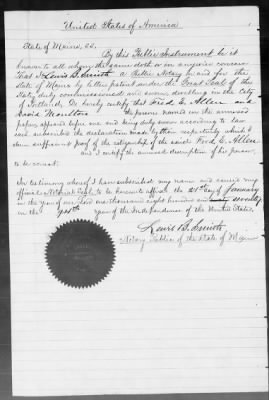 United States of America
State of Maine, SS.
By this Public Instrument be it
known to all whom the same doth or in anywise concern
That I Lewis B. Smith a Public Notary in and for the
State of Maine by letters patent under the Great Seal of the
State, duly commissioned and sworn, dwelling in the City
of Portland, Do hereby certify that Fred E. Allen and
David Moulton the persons named in the annexed
papers appeared before me and being duly sworn according to law
and subscribed the declaration made by them respectively which I
deem sufficient proof of the citizenship of the said Fred E. Allen
and I certify the annexed description of his person,
to be correct.
In testimony whereof I have subscribed my name and caused my
official Notarial Seal to be hereunto affixed the 21st day of January
in the year of our Lord one thousand eight hundred and seventy
in the year of the Independence of the United States.
Lewis B. Smith
Notary Public of the State of Maine